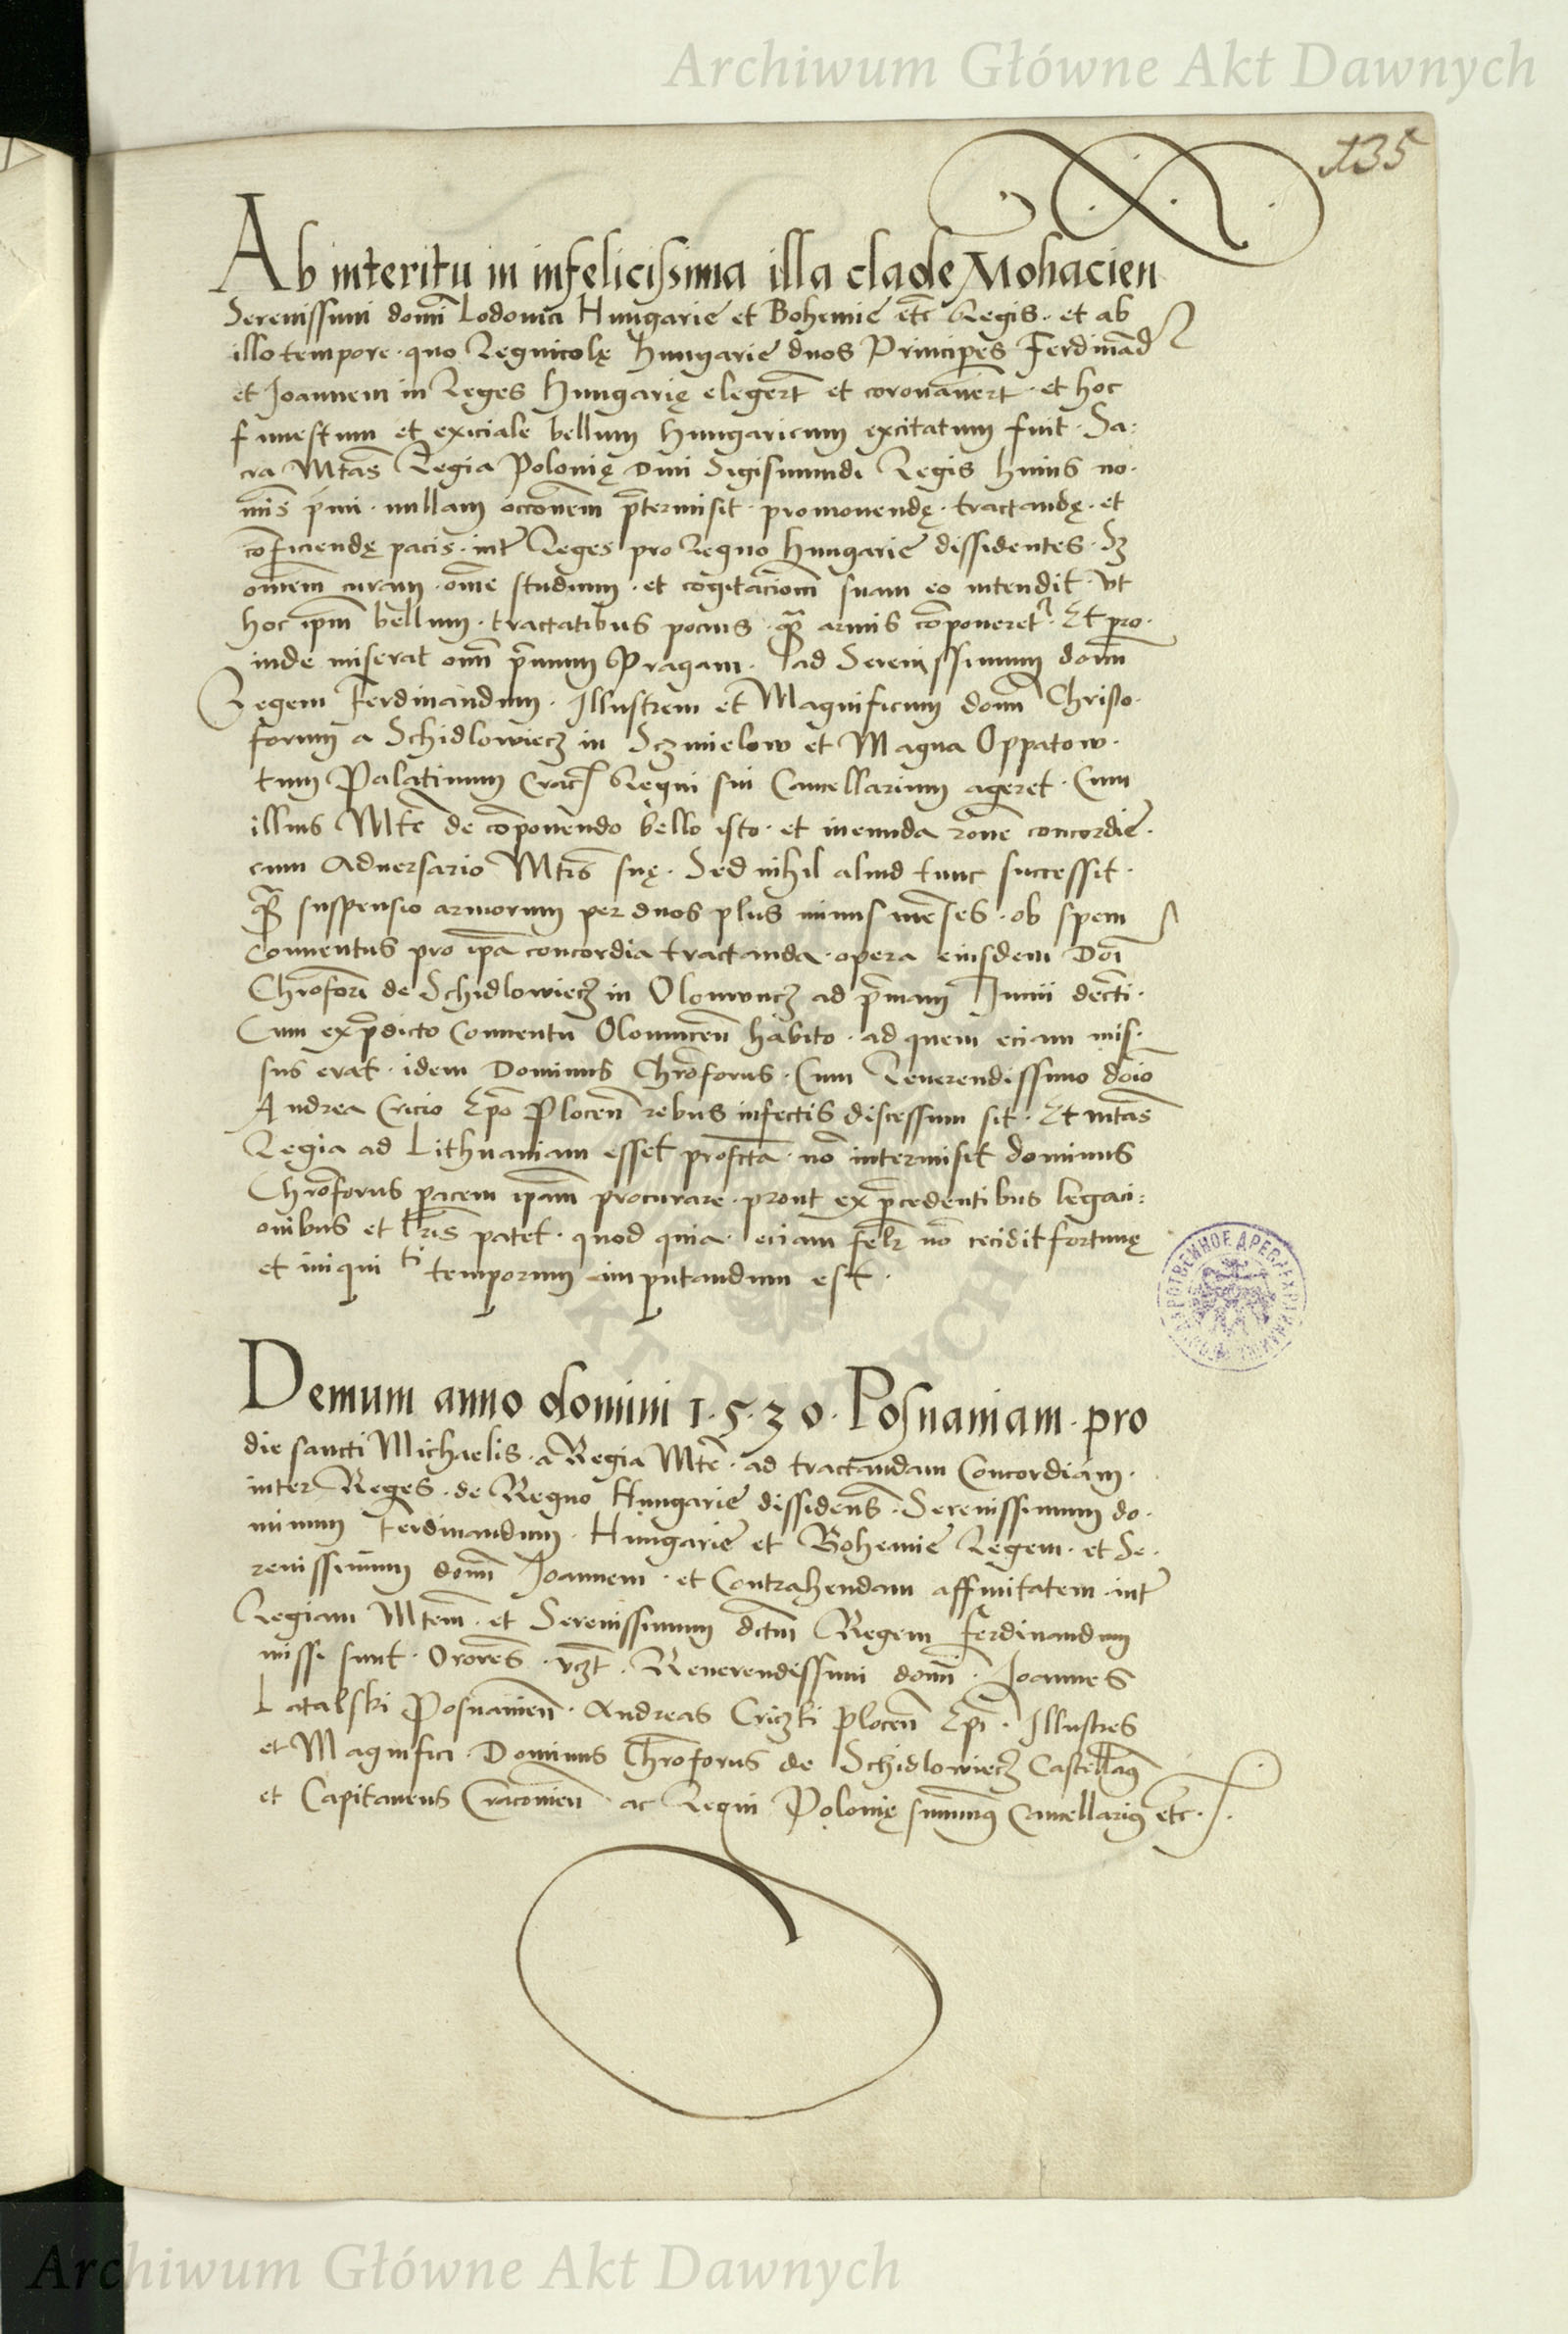 Archiwum Główne Akt Dawnych
135
Ab interitu in infelicissima illa clade Mohacien
Serenissimi domī Lodouici Hungarie et Bohemie etc̄ Regis · et ab
illo tempore · quo Regnicolę Hungarie duos Principes Ferdinād
et Joannem in Reges Hungarię elegert̄ et coronauert̄ · et hoc
funestum et exiciale bellum Hungaricum excitatum fuit · Sa:
cra Mtas̄ Regia Polonię Dni Sigismundi Regis huius no·
mīs prīmi · nullam occonem̄ p̄termisit · promouendę · tractandę · et
cōficiendę pacis · inter̄ Reges pro Regno Hungarie dissidentes · Sz
omēm curam · omē studium · et cogitacionem̄ suam eo intendit · vt
hoc ipm̄ bellum · tractatibus pocius · q̄ armis cōponeret᷑ · Et pro·
inde miserat om̄ p̄mum Pragam · ad Serenissimum dom̄
Regem Ferdinandum · Illustrem et Magnificum dom̄ Christo·
forum a Schidlowiecz in Sczmielow et Magna Oppatow ·
tum Palatinum Crac̄ Regni sui Cancellarium ageret · Cum
illius Mte̅ de cōponendo bello isto · et ineunda rōne concordie ·
cum Aduersario Mtis̄ suę · Sed nihil aliud tunc successit ·
q̄ suspensio armorum per duos plus minus menses · ob spem
Conuentus pro ipā concordia tractanda · opera eiusdem Doī
Chrōfori de Schidlowiecz in Olomuncz ad p̄mam Junii decti̅ ·
Cum ex p̄dicto Conuentu Olomucen̄ habito · ad quem eciam mis·
sus erat · idem Dominus Chrōforus · Cum Reuerendissimo dōio
Andrea Cricio Ep̄o Plocen̄ rebus infectis discessum sit · Et mtas̄
Regia ad Lithuaniam esset profcta̅ · nō intermisit dominus
Chrōforus pacem ipam̄ procurare · prout ex p̄cedentibus legaci:
onibus et lr̄is patet · quod quia · eciam felr̄ nō cecidit fortunę
et iniqui ti temporum imputandum est ·
Demum anno domini 1·5·30 · Posnaniam · pro
die sancti Michaelis · a Regia Mte̅ · ad tractandam Concordiam ·
inter Reges · de Regno Hungarie dissidens̄ · Serenissimum do·
minum Ferdinandum · Hungarie et Bohemie Regem · et Se·
renissimum dom̄ Joannem · et Contrahendam affinitatem · inter̄
Regiam Mtem̄ · et Serenissimum dctm̄ Regem Ferdinandum
missi sunt · Orores̄ · vzt̄ · Reuerendissimi dom̄ · Joannes
Latalski Posnanien̄ · Andreas Criczki plocen̄ Ep̄i · Illustres
et Magnifici · Dominus Chrōforus de Schidlowiecz Castellan9
et Capitaneus Cracouien̄ · ac Regni Polonię sum̄us Cancellari9 etc̄ ·
Archiwum Główne Akt Dawnych